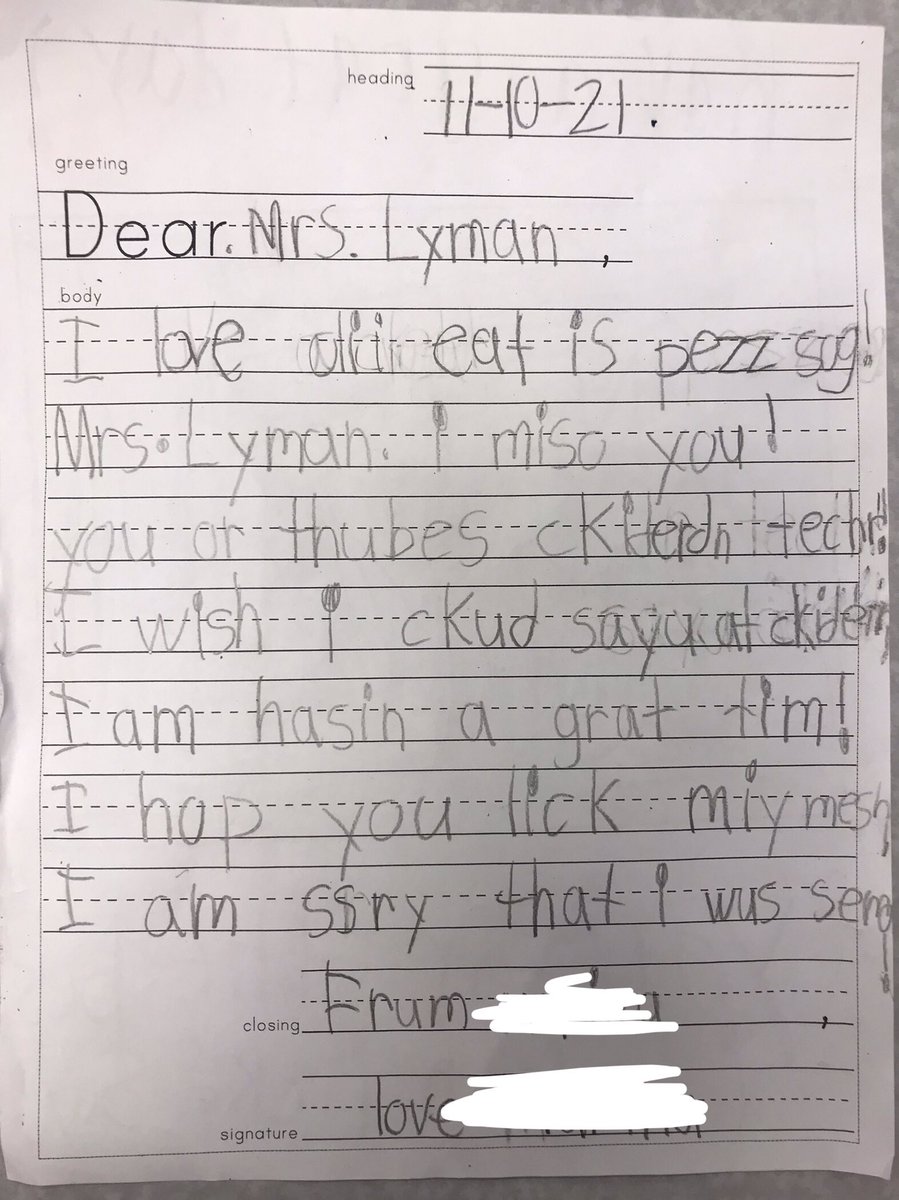 heading 11-10-21.
greeting
Dear. Mrs. Lyman ,
body
I love eat is pezz sug!
Mrs. Lyman. i miso you!
you or thubes ckilerdn techr!
I wish i ckud say at
I am hasin a grat tim!
I hop you lick miy mesh
I am ssry that i wus sen
closing Frum ,
signature love